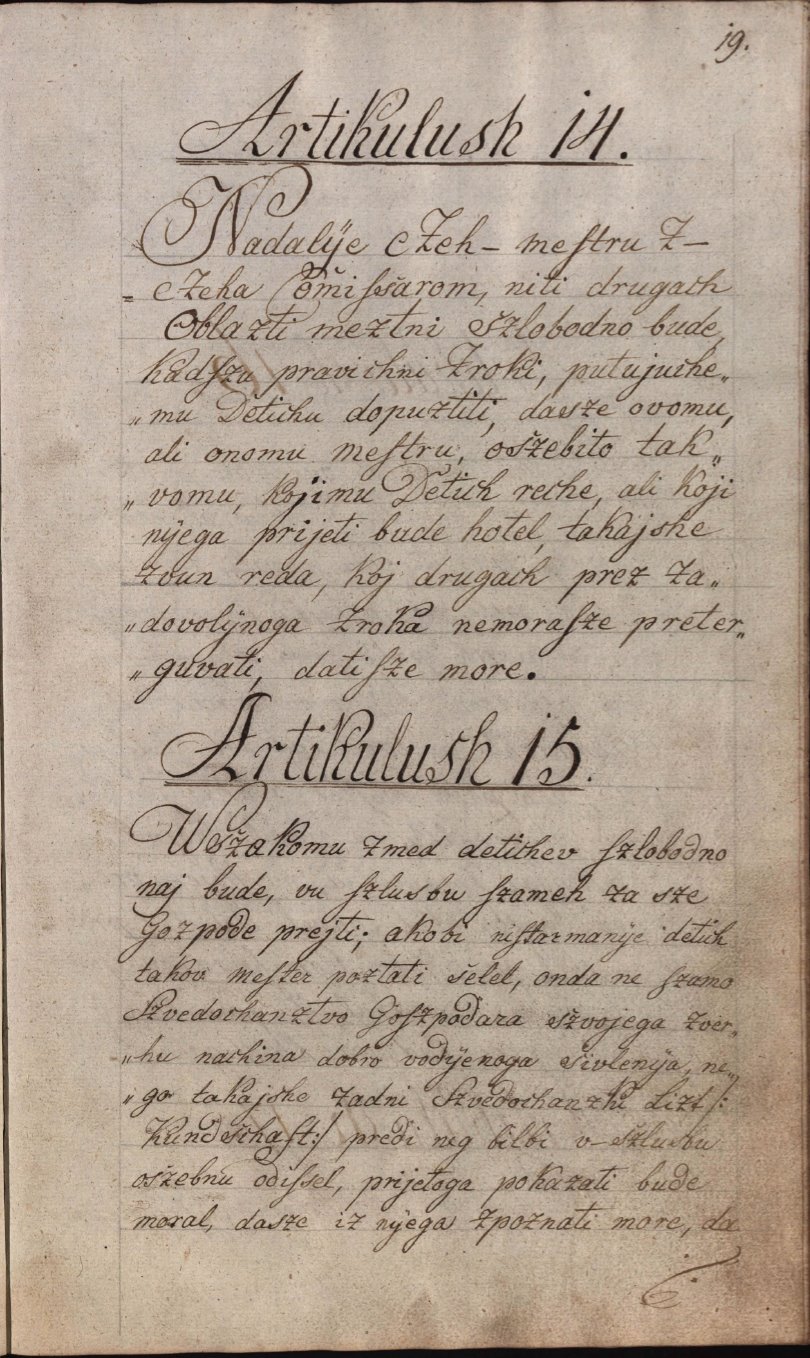 19.
Artikulush 14.
Nadalÿe cZeh- meſtru Z-
= cZeha Com̃iſsarom, niti drugach
Oblazti meztni szlobodno bude,
kadszu pravichni Zroki, putujuche„
„mu Detichu dopuztiti, dasze ovomu,
ali onomu meſtru, oszebito tak„
„vomu, kojimu Detich reche, ali koji
nÿega prijeti bude hotel, takajshe
zvun reda, koj drugach prez za„
„dovolÿnoga zroka nemoraſze preter„
„guvati, datiſze more.
Artikulush 15.
Wszakomu zmed detichev ſzlobodno
naj bude, vu ſzlusbu ſzameh za sze
Gozpode prejti; akobi niſtarmanÿe detich
takov meſter poztati selel, onda ne ſzamo
Szvedochanztvo Goſzpodara szvojega zver„
„hu nachina dobro vodÿenoga sivlenÿa, ne„
„go takajshe zadni Szvedochanzki Lizt /:
Kundschaft:/ predi neg bilbi v-szlusbu
oszebnu odiſsel, prijetoga pokazati bude
moral, dasze iz nÿega zpoznati more, da